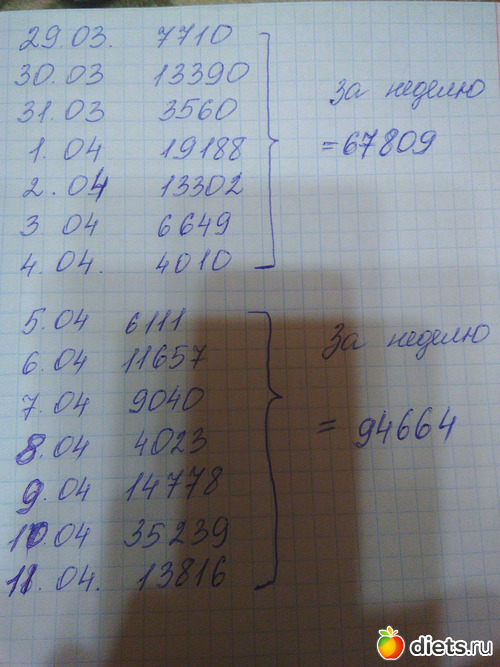 29.03. 7710
30.03 13390
31.03 3560
1.04 19188
2.04 13302
3 04 6649
4.04. 4010
За неделю
=67809
5.04 6111
6.04 11657
7.04 9040
8.04 4023
9.04 14778
10.04 35239
11.04. 13816
За неделю
= 94664
diets.ru